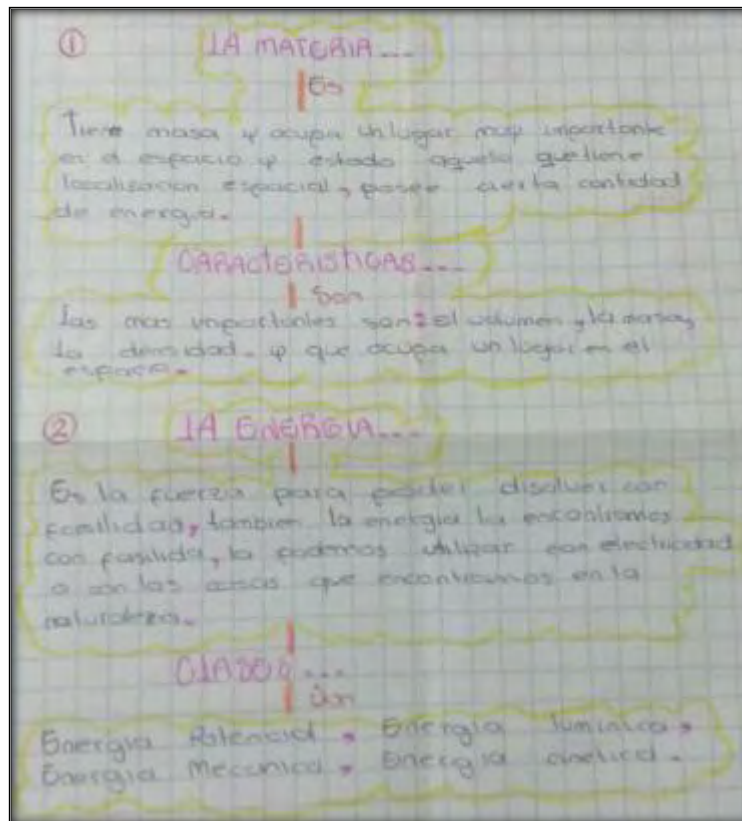 1
LA MATERIA...
Es
Tiene masa y ocupa un lugar muy importante
en el espacio y estado aquela que tiene
localisacion espacial, posee cierta cantidad
de energia.
CARACTERISTICAS...
Son
Las mas importantes son: el volumen, la masa,
la densidad. y que ocupa un lugar en el
espacio.
2
LA ENERGIA...
Es la fuerza para poder disolver con
facilidad, tambien la energia la encontramos
con fasilida, la podemos utilizar con electricidad
o con las cosas que encontramos en la
naturaleza.
CLASES...
Energia Potencial, Energia luminica,
Energia Mecanica, Energia cinetica.